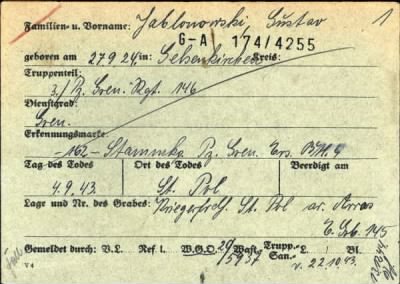 1
Familien- u. Vorname: Jablonowski, Gustav
G-A 174/4255
geboren am 27 9 24 in: Gelsenkirchen Kreis:
Truppenteil:
3./Pz. Gren. Rgt. 146
Dienstgrad:
Gren.
Erkennungsmarke:
-162- Stammkp. Pz. Gren. Ers. Btl. 4
Tag des Todes Ort des Todes Beerdigt am
4.9.43. St. Pol
Lage und Nr. des Grabes: Kriegerfrdh. St. Pol Arras
E. Grb. 145
Gemeldet durch: V.L. Ref I. W.G.O. 29/5937 Wast. Trupp. San. L. Bl.
v. 22.10.43.
V 4